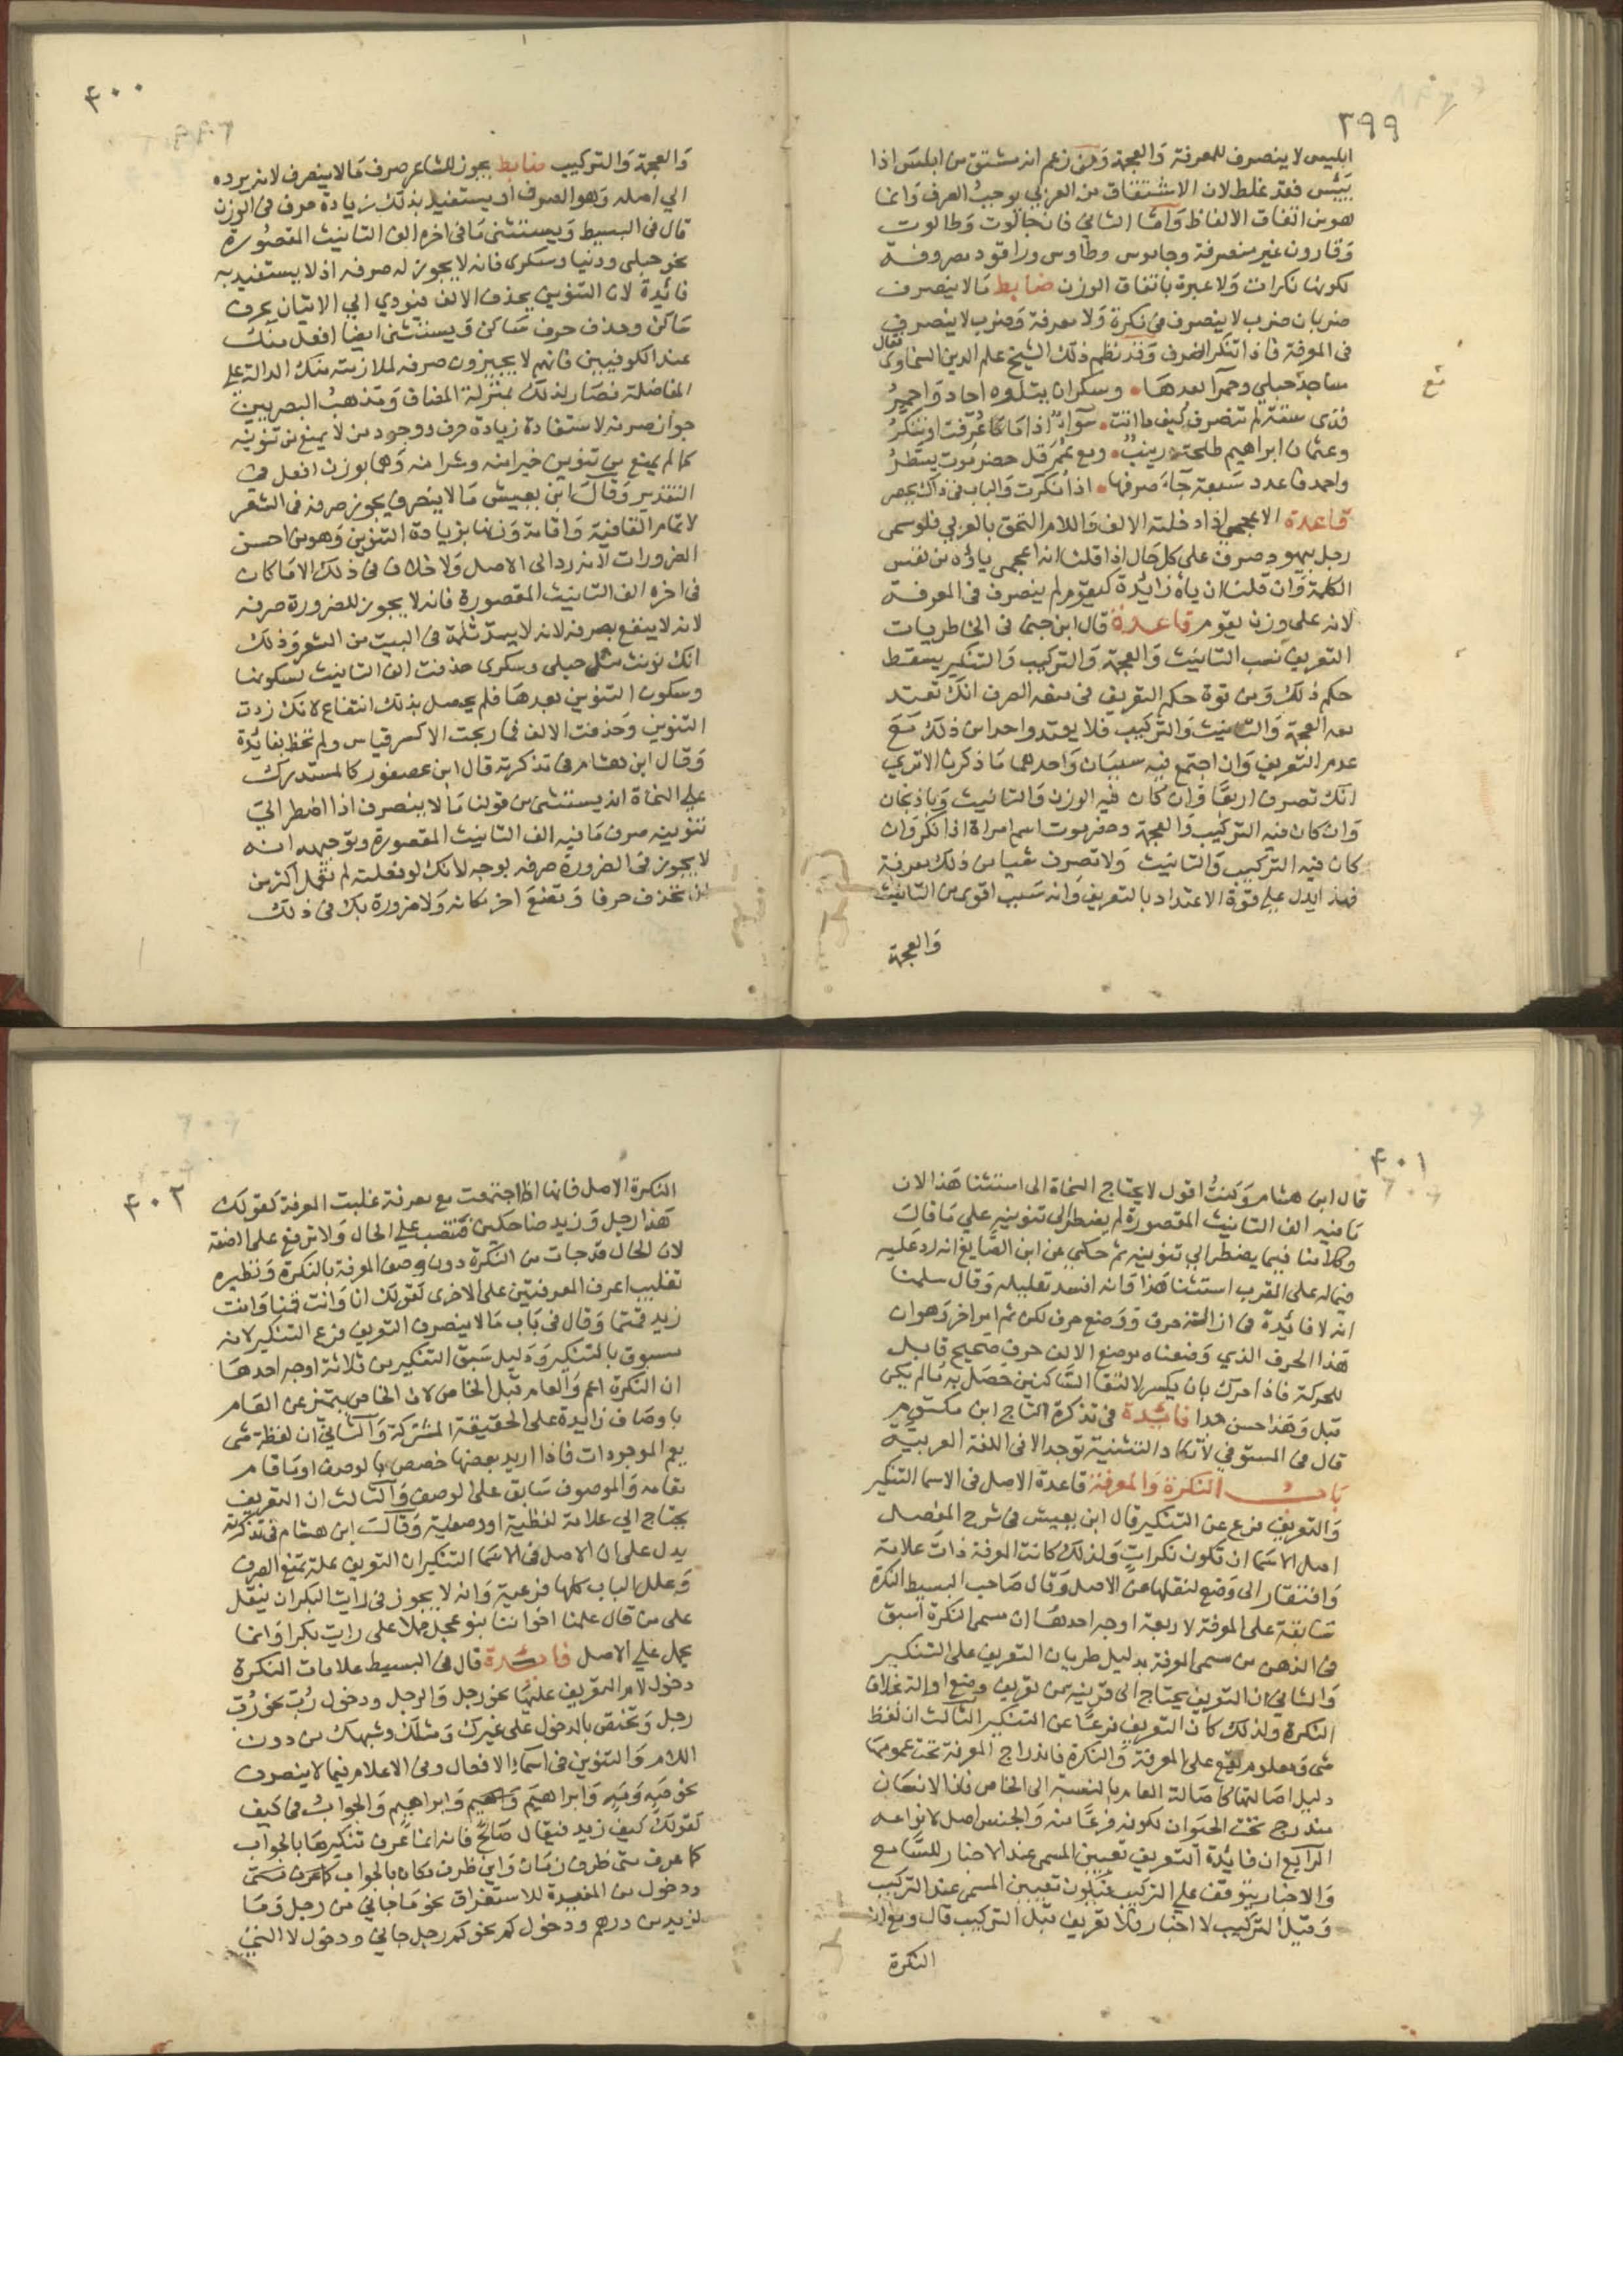 ٣٩٩
ابليس لا ينصرف للمعرفة وَالعجمة وَمَن زعم انه مشتق من ابلسَ اذا
يَئِسَ فقد غلط لان الاشتقاق من العربي يوجبُ الصرف وَانما
هو من اتفاق الالفاظ وَامّا الثاني فان جالوت وَطالوت
وَقارون غير منصرفة وجاموس وطاوس وراقود مصروفة
لكونها نكرات وَلا عبرة باتفاق الوزن ضابط مَا لا ينصرف
ضربان ضرب لا ينصرف في نكرة وَلا معرفة وَضرب لا ينصرف
في المعرفة فاذا تنكر انصرف وَقد نظم ذلك الشيخ علم الدين السخاوي فقال
مساجد حبلي وحمرآ بعدهَا وسكران يتلوه احاد وَاحمرُ
فذي ستة لم تنصرف كيف ما اتت سَوآءٌ اذا مَا عُرِّفت او تنكَّرُ
وعثمان ابراهيم طلحة زينبٌ ومع عُمَر قل حضرموت يسَطّرُ
واحمد فاعدد سَبعة جآءَ صرفها اذا نكرت وَالباب في ذاك يحصر
قاعدة الاعجمي اذا دخلته الالف وَاللام التحق بالعربي فلو سمي
رجل بيهود صرف على كل حَال اذا قلنا انه اعجمي ياؤه من نفس
الكلمة وَان قلنا ان ياه زائدة كيقوم لم ينصرف في المعرفة
لانه على وزن يقوم قاعدة قال ابن جني في الخاطريات
التعريف نصب التانيث وَالعجمة وَالتركيب وَالتنكير يسقط
حكم ذلك وَمن قوة حكم التعريف في منعه الصرف انك تعتد
معه العجمة وَالتانيث وَالتركيب فلا يعتد واحد من ذلك مَعَ
عدم التعريف وَان اجتمع فيه سببَان وَاحدهما مَا ذكرنا الا تري
انك تصرف اربعًا وَان كان فيه الوزن وَالتانيث وَباذنجان
وَان كان فيه التركيب وَالعجمة وحضرموت اسم امراة اذا نكر وَان
كان فيه التركيب وَالتانيث وَلا تصرف شيا من ذلك معرفة
فهذا يدل على قوة الاعتداد بالتعريف وَانه سَبب اقوى من التانيث
وَالعجمة
٤٠٠
وَالعجمة وَالتركيب ضابط يجوز للشاعر صرف مَا لا ينصرف لانه يرده
الي اصله وَهو الصرف او يستفيد بذلك زيادة حرف في الوزن
قال في البسيط وَيستثني مَا في اخره الف التانيث المقصُورة
نحو حبلى ودنيا وسكرى فانه لا يجوز له صرفه اذ لا يستفيد به
فائدة لان التنوين يحذف الالف فيودي الي الاتيان بحرف
سَاكن وحذف حرف سَاكن وَيستثنى ايضًا افعل منكَ
عند الكوفيين فانهم لا يجيزون صرفه لملازمته منك الدالة على
المفاضلة فصَار لذلك بمنزلة المضاف وَمَذهبُ البصريين
جواز صرفه لاستفادة زيادة حرف ووجود من لا يمنع من تنوينه
كما لم يمنع من تنوين خير امنه وشر امنه وَهما بوزن افعل في
التقدير وَقالَ ابن يعيش مَا لا ينصرف يجوز صرفه في الشعر
لاتمام القافية وَاقامة وَزنها بزيادة التنوين وَهو من احسن
الضرورات لانه رد الى الاصل وَلا خلاف في ذلك الا مَا كان
في اخره الف التانيث المقصورة فانه لا يجوز للضرورة صرفه
لانه لا ينتفع بصرفه لانه لا يسدّ ثلمة في البيت من الشعر وَذلك
انك نونت مثل حبلى وسكرى حذفت الف التانيث لسكونها
وسكون التنوين بعدهَا فلم يحصل بذلك انتفاع لانك زدت
التنوين وَحذفت الالف فما ربحت الا كسر قياس ولم تحظ بفائدة
وَقال ابن هشام في تذكرته قال ابن عصفور كالمستدرك
على النحاة انه يستثنى من قولنا مَا لا ينصرف اذا اضطر الي
تنوينه صرف مَا فيه الف التانيث المقصورة وتوجيهه انه
لا يجوز في الضرورة صرفه بوجه لانك لو فعلته لم تعمل اكثر من
ان تحذف حرفا وَتضعَ اخر مكانه وَلا ضرورة بك في ذلك
٤٠١
قال ابن هشام وَكنتُ اقول لا يحتاج النحاة الى استثنا هَذا لان
مَا فيه الف التانيث المقصورة لم يضطر الى تنوينه علي مَا قالَ
وكلامنا فيما يضطر الي تنوينه ثم حكي عن ابن الصَّايغ انه رد عَليه
فيما له على المقرب استثنا هَذا وَانه افسد تعليله وَقال سلمنا
انه لا فائدة في ازالة حرف وَوَضع حرف لكن ثم امر اخر وَهو ان
هَذا الحرف الذي وَضعناه موضع الالف حرف صحيح قابل
للحركة فاذا حرك بان يكسر لالتقا السَّاكنين حصَل به مَا لم يكن
قبل وَهَذا حسن جدا فائدة في تذكرة التاج ابن مكتوم
قال في المستوفي لا تكاد التثنية توجد الا في اللغة العربية
بَابُ النكرة وَالمعرفة قاعدة الاصل في الاسما التنكير
وَالتعريف فرع عن التنكير قال ابن يعيش في شرح المفصل
اصل الاسَما ان تكون نكراتٍ وَلذلك كانت المعرفة ذات علامة
وَافتقار الى وَضع لنقلها عن الاصل وَقال صَاحب البسيط النكرة
سَابقة على المعرفة لاربعة اوجه احدهَا ان مسمى النكرة اسبق
في الذهن من مسمى المعرفة بدليل طريان التعريف على التنكير
وَالثاني ان التعريف يحتاج الى قرينة من تعريف وضع او الة بخلاف
النكرة ولذلك كان التعريف فرعًا عن التنكير الثالث ان لفظ
شى وَمعلوم يقع على المعرفة وَالنكرة فاندراج المعرفة تحت عمومهَا
دليل اصَالتها كاصَالة العام بالنسبة الى الخاص فان الانسَان
مندرج تحت الحيَوان لكونه فرعًا منه وَالجنس اصل لانواعه
الرابع ان فائدة التعريف تعيين المسمى عند الاخبار للسَّامع
وَالاخبار يتوقف على التركيب فيَكون تعيين المسمى عند التركيب
وَقبل التركيب لا اخبار فلا تعريف قبل التركيب قال ومع ان
النكرة
٤٠٢
النكرة الاصل فانها اذا اجتمعت مع معرفة غلبت المعرفة كقولك
هَذا رجل وَزيد ضاحكين فتنصب علي الحال وَلا ترفع على الصفة
لان الحال قد جات من النكرة دون وصف المعرفة بالنكرة وَنظيره
تغليب اعرف المعرفتين على الاخرى كقولك انا وَانت قمنا وَانت
وَزيد قمتما وَقال في بَاب مَا لا ينصرف التعريف فرع التنكير لانه
مسبوق بالتنكير وَدَليل سَبق التنكير من ثلاثة اوجه احدهَا
ان النكرة اعم وَالعام قبل الخاص لان الخاص يتميز عن العَام
باوصَاف زايدة على الحقيقة المشتركة وَالثاني ان لفظة شى
يعم الموجودات فاذا اريد بعضها خصص بالوصف او مَا قام
مقامه وَالموصوف سَابق على الوصف وَالثالث ان التعريف
يحتاج الي علامة لفظية او وضعية وَقالَ ابن هشام في تذكرته
يدل على ان الاصل في الاسَما التنكير ان التعريف علة تمنع الصرف
وَعلل الباب كلها فرعية وَانه لا يجوز في رايت البكر ان ينقل
على من قال علمنا اخواننا بنو عجل حملا على رايت بكرا وَانما
يحمل علي الاصل فائدة قال في البسيط علامات النكرة
دخول لام التعريف عليهَا نحو رجل وَالرجل ودخول رُبَّ نحو رُبّ
رجل وَتختص بالدخول على غيرك وَمثلك وشبهك من دون
اللام وَالتنوين في اسمآءِ الافعال وفي الاعلام فيما لا ينصرف
نحو صَهٍ وَمَهٍ وَابراهيمَ وَابراهيمٍ وَالجوابُ في كيف
كقولك كيف زيد فيقال صَالحٌ فانه انما عُرِف تنكيرهَا بالجواب
كما عرف متى ظرف زمَان وَاين ظرف مكان بالجواب
ودخول من المفيدة للاستغراق نحو مَا جاني من رجل وَمَا
لزيد من درهم ودخول كم نحو كم رجل جاني ودخول لا التي